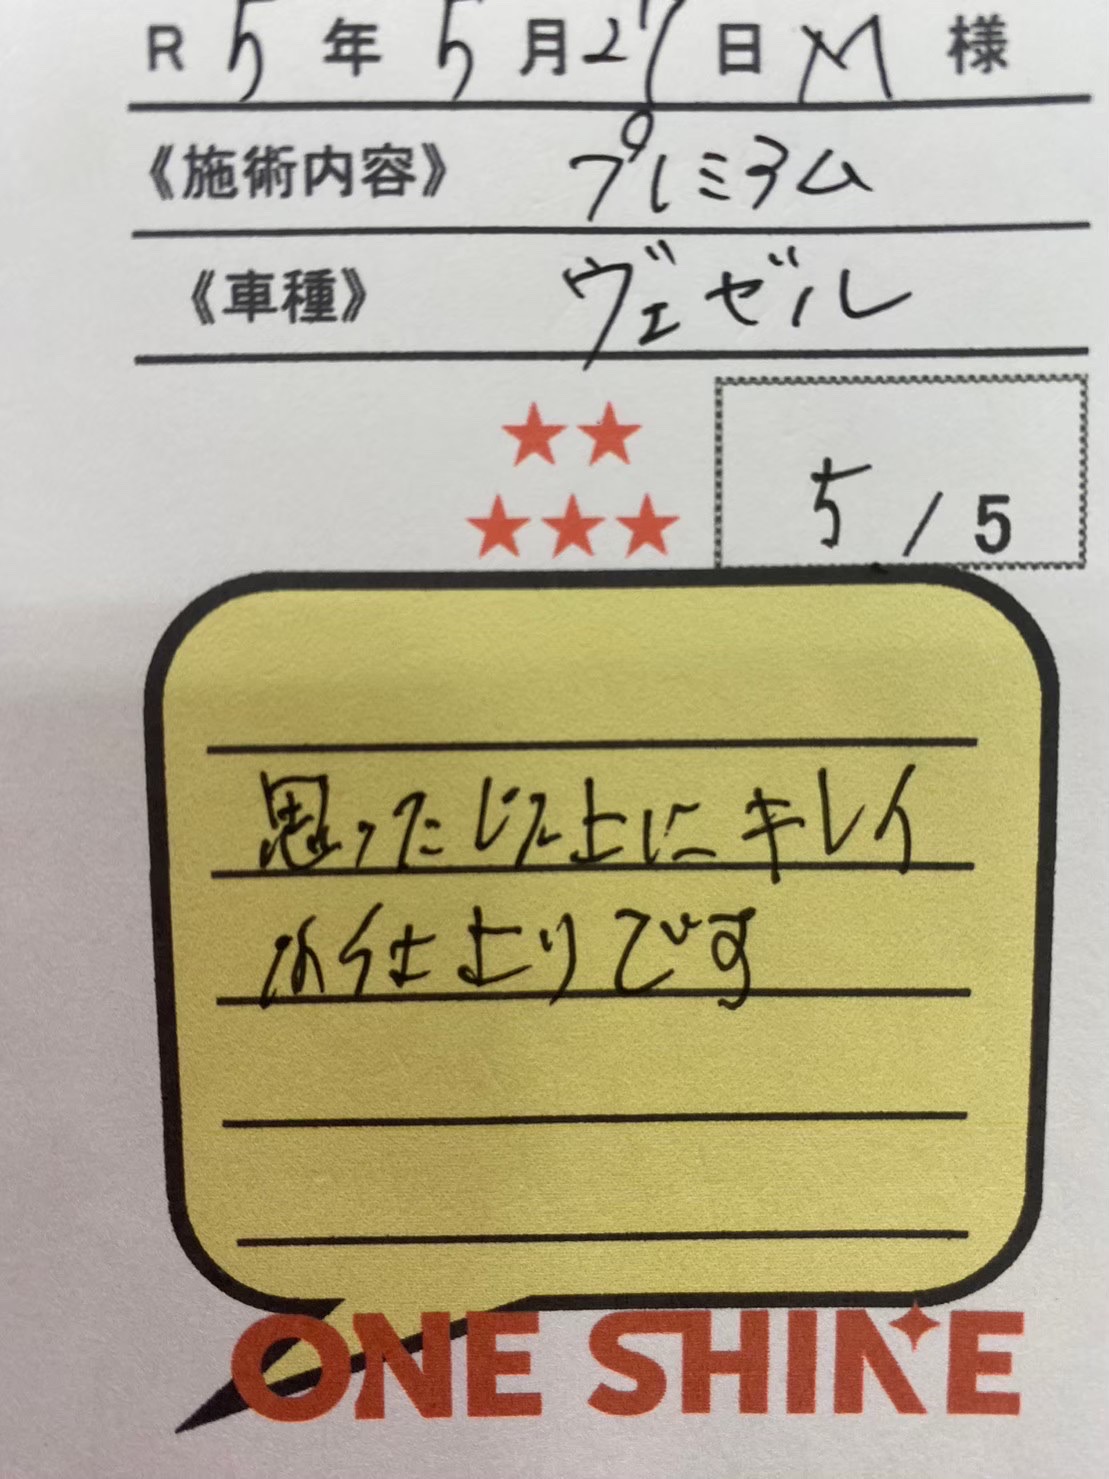 R 5 年 5 月 27 日 M 様
《施術内容》 プレミアム
《車種》 ヴェゼル
★★
★★★
5 / 5
思った以上にキレイ
です
ONE SHINE